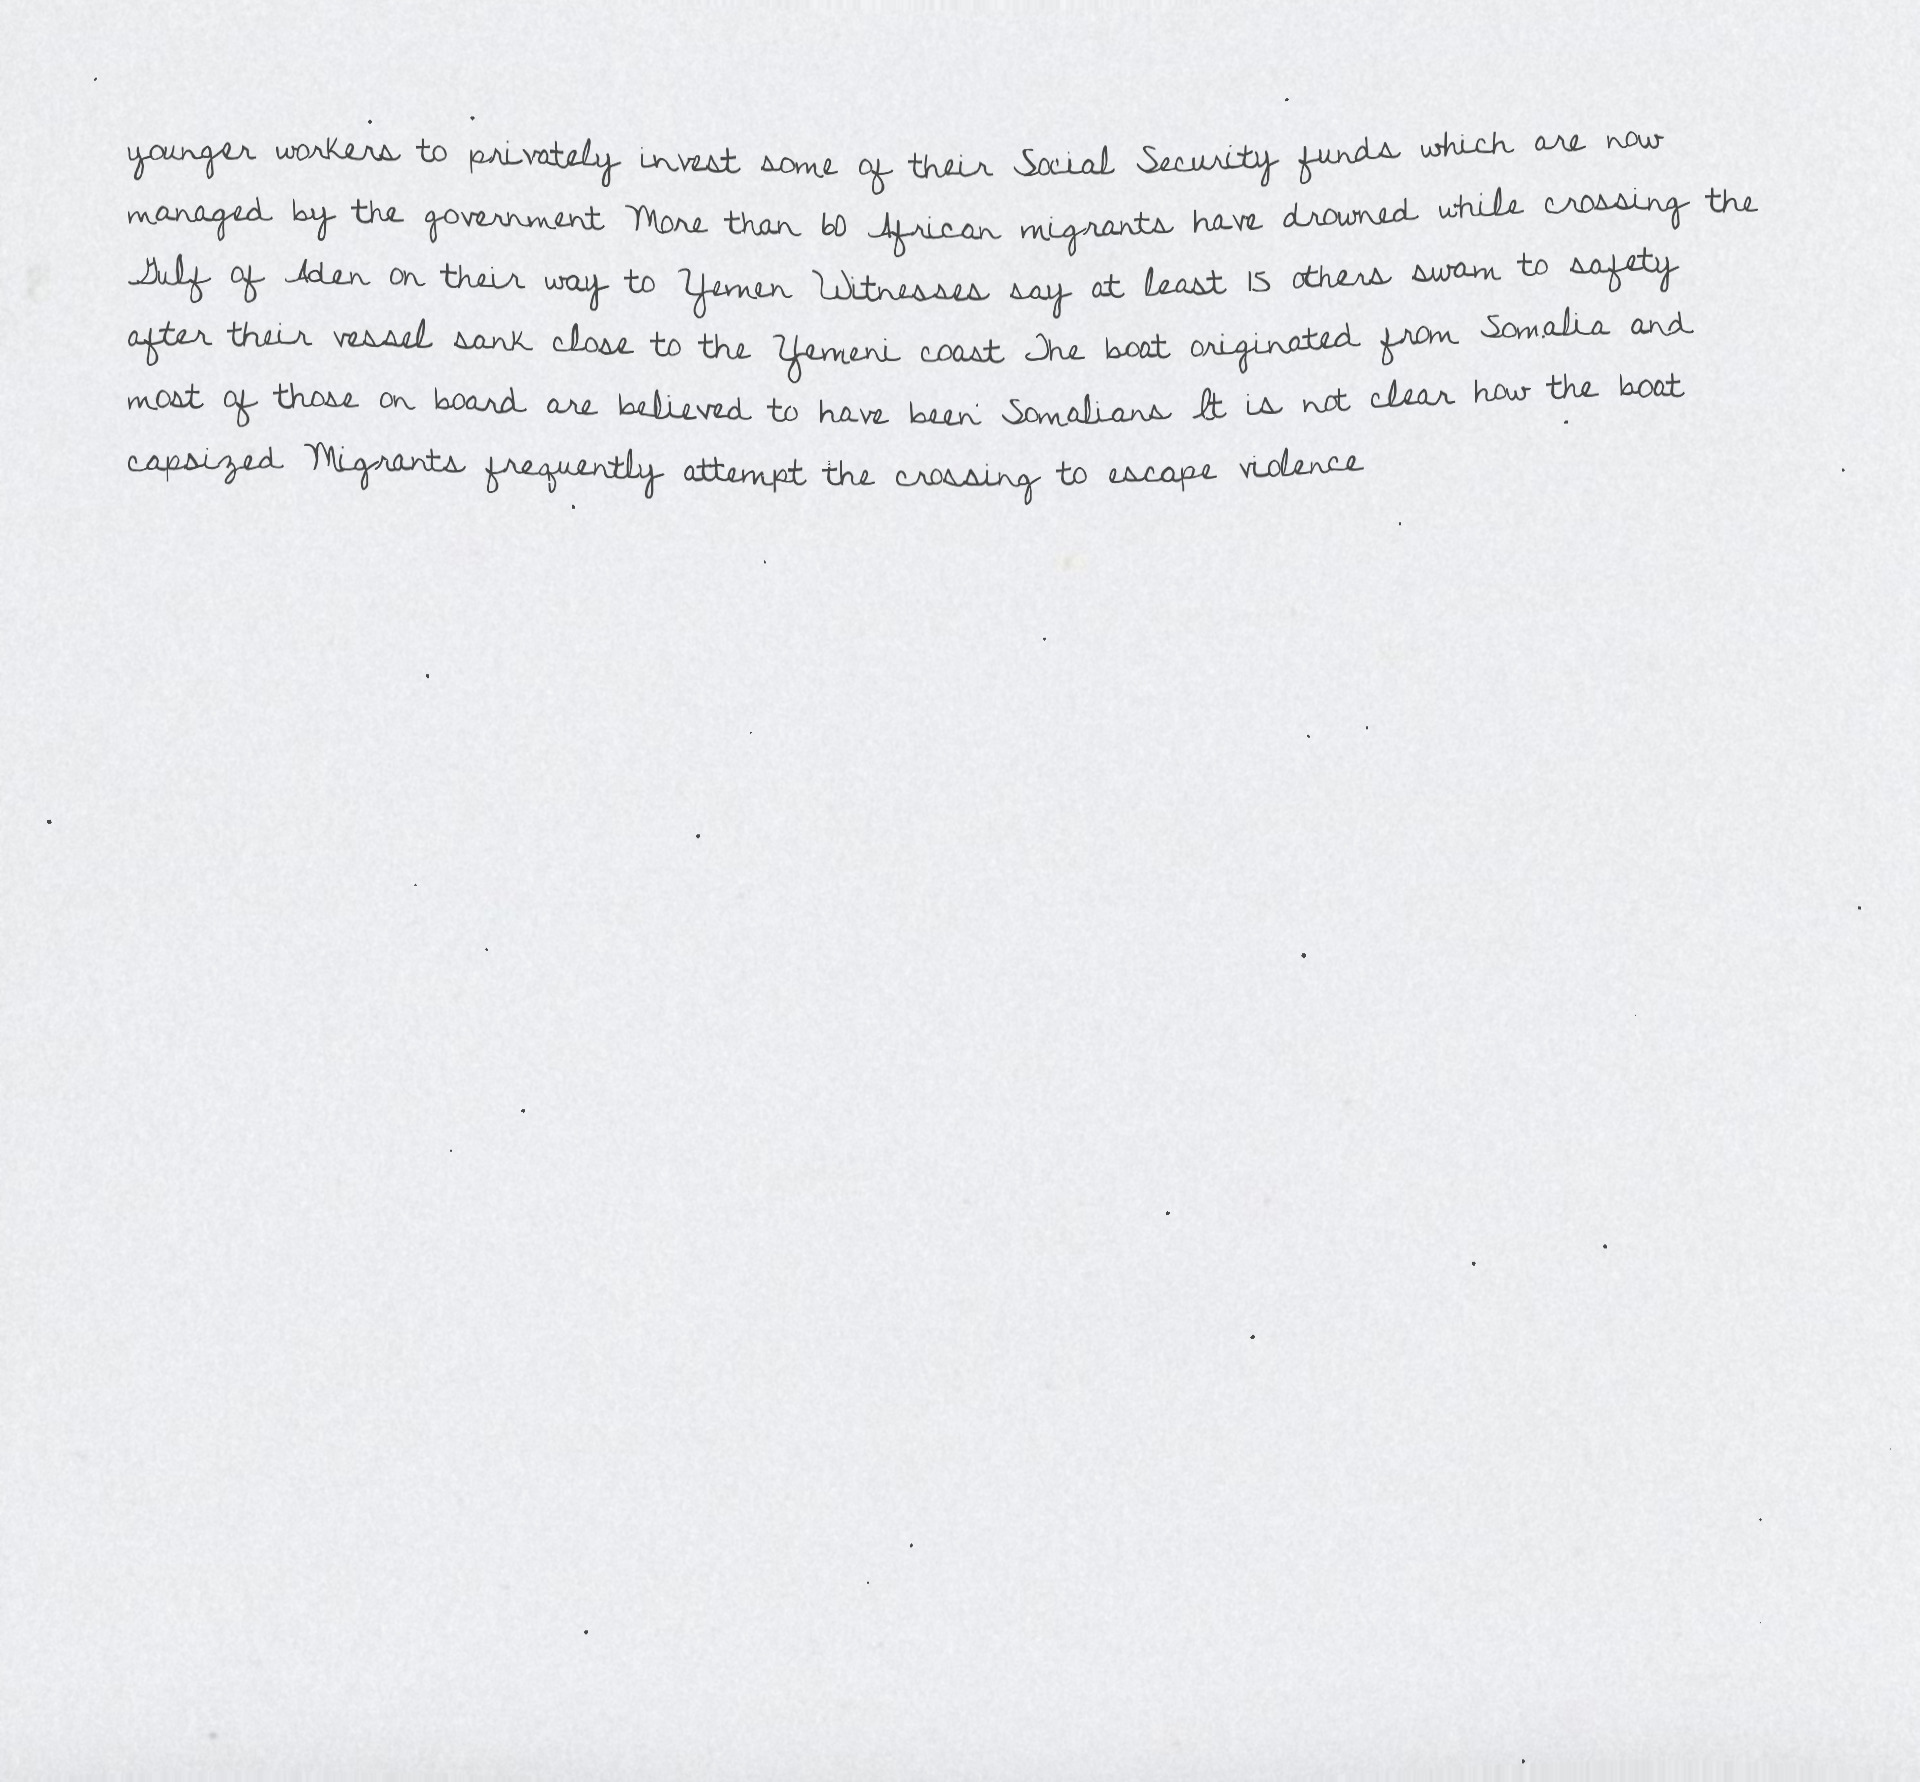 younger workers to privately invest some of their Social Security funds which are now
managed by the government More than 60 African migrants have drowned while crossing the
Gulf of Aden on their way to Yemen Witnesses say at least 15 others swam to safety
after their vessel sank close to the Yemeni coast The boat originated from Somalia and
most of those on board are believed to have been Somalians It is not clear how the boat
capsized Migrants frequently attempt the crossing to escape violence